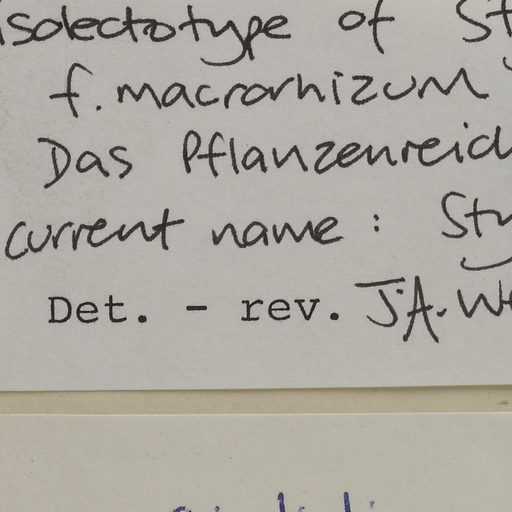 isolectotype of
f. macrorhizum
Das Pflanzenreich
current name:
Det. - rev. J.A.